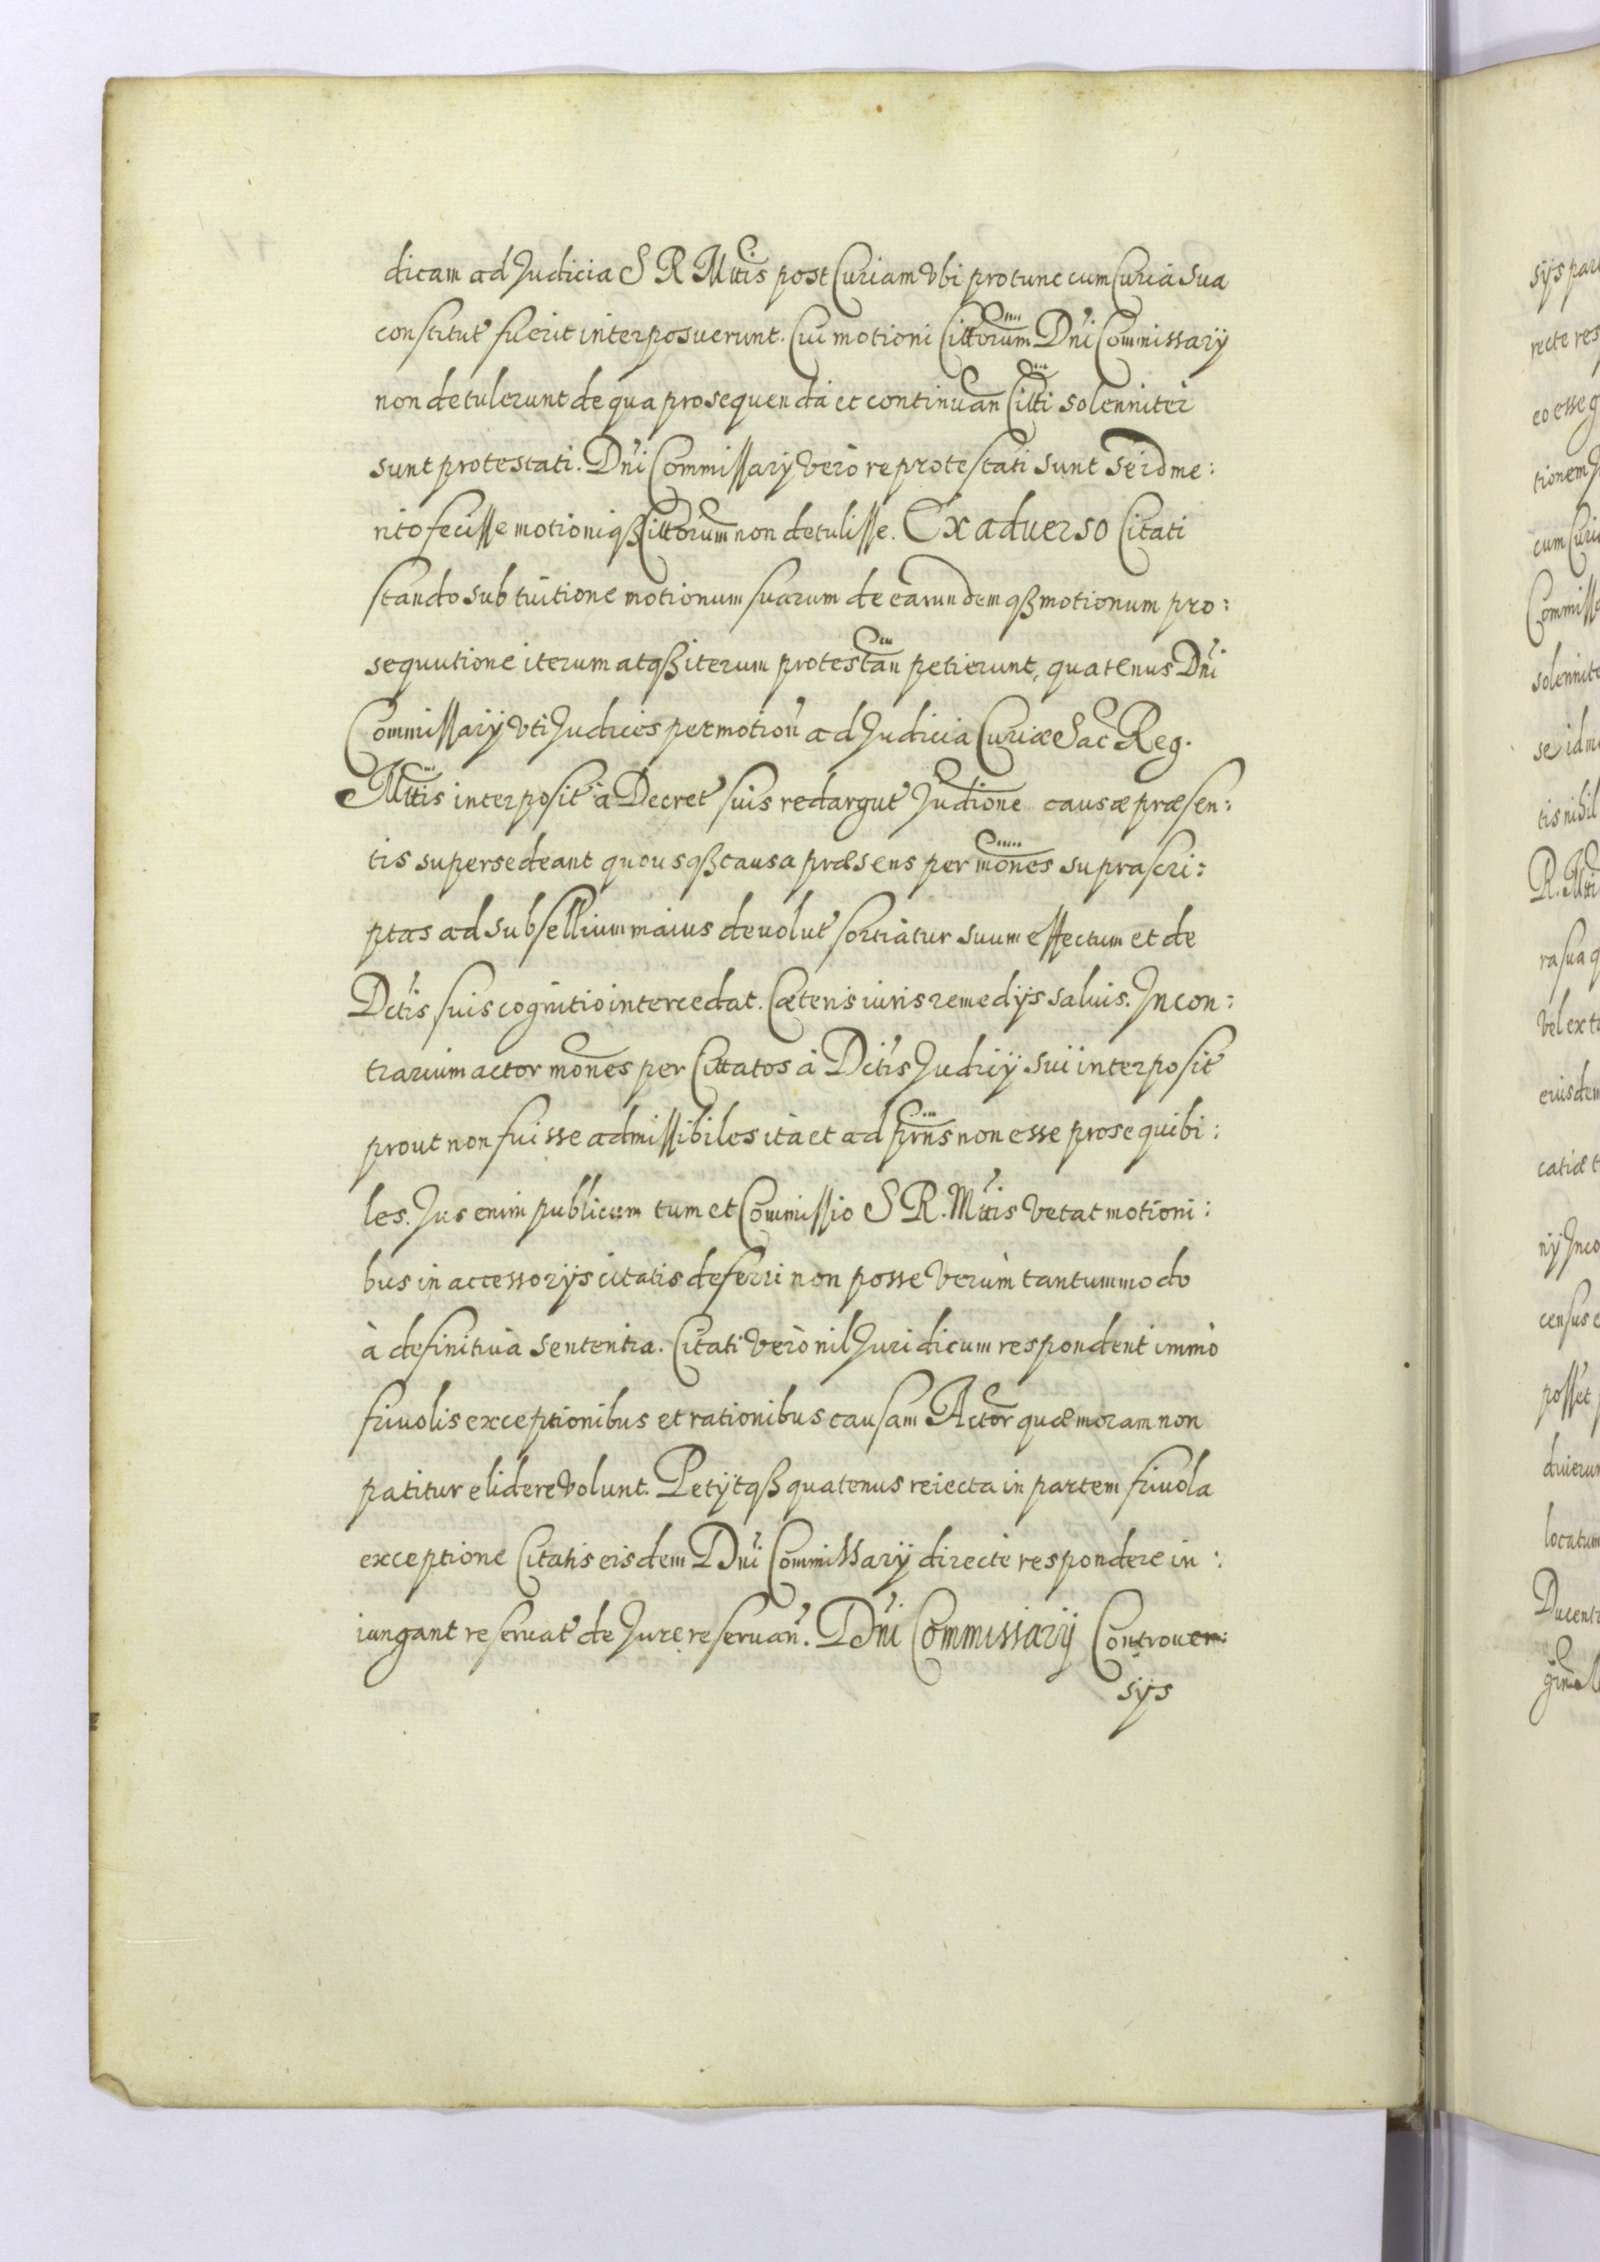 dicam ad Judicia S R Mttis post Curiam Vbi protunc cum Curiâ Sua
constitut fuerit interposuerunt. Cui motioni Cittorum Dni Commissarÿ
non detulerunt de qua prosequendâ et continuan Citti solenniter
sunt protestati. Dni Commissarÿ Verò reprotestati sunt se id me:
rito fecisse motioniqß Cittorum non detulisse. Ex adverso Citati
stando sub tuitione motionum suarum de earundemqß motionum pro:
sequutione iterum atqß iterum protestan petierunt, quatenus Dni
Commissarÿ Vti Judices per motion ad Judicia Curiæ Sac Reg.
Mttis interposit à Decret suis redargut Judione causæ præsen:
tis supersedeant quousqß causa præsens per mones suprascri:
ptas ad subsellium maius devolut sortiatur suum effectum et de
Dctis suis cognitio intercedat. Cæteris iuris remedijs salvis. In con:
trarium actor mones per Citatos à Dctis Judicÿ sui interposit
prout non fuisse admissibiles ità et ad prns non esse prosequibi:
les. Jus enim publicum tum et Commissio S R. Mttis Vetat motioni:
bus in accessorÿs citatis deferri non posse Verùm tantummodo
à definitivâ sententia. Citati Verò nil Juridicum respondent immò
frivolis exceptionibus et rationibus causam Actor quæ moram non
patitur elidere Volunt. Petÿtqß quatenus reiecta in partem frivola
exceptione Citatis eisdem Dni Commissarÿ directe respondere in:
iungant reservat de Jure reservan. Dni Commissarÿ Controver:
sÿs
sÿs par
recte res
eo esse g
tionem J
cum Curi
Commiss
solennite
se id m
tis nihil
R. Mtti
ra sua q
Vel ex t
eiusdem
catiæ t
nÿ Inco
census e
posset
locatum
Ducent